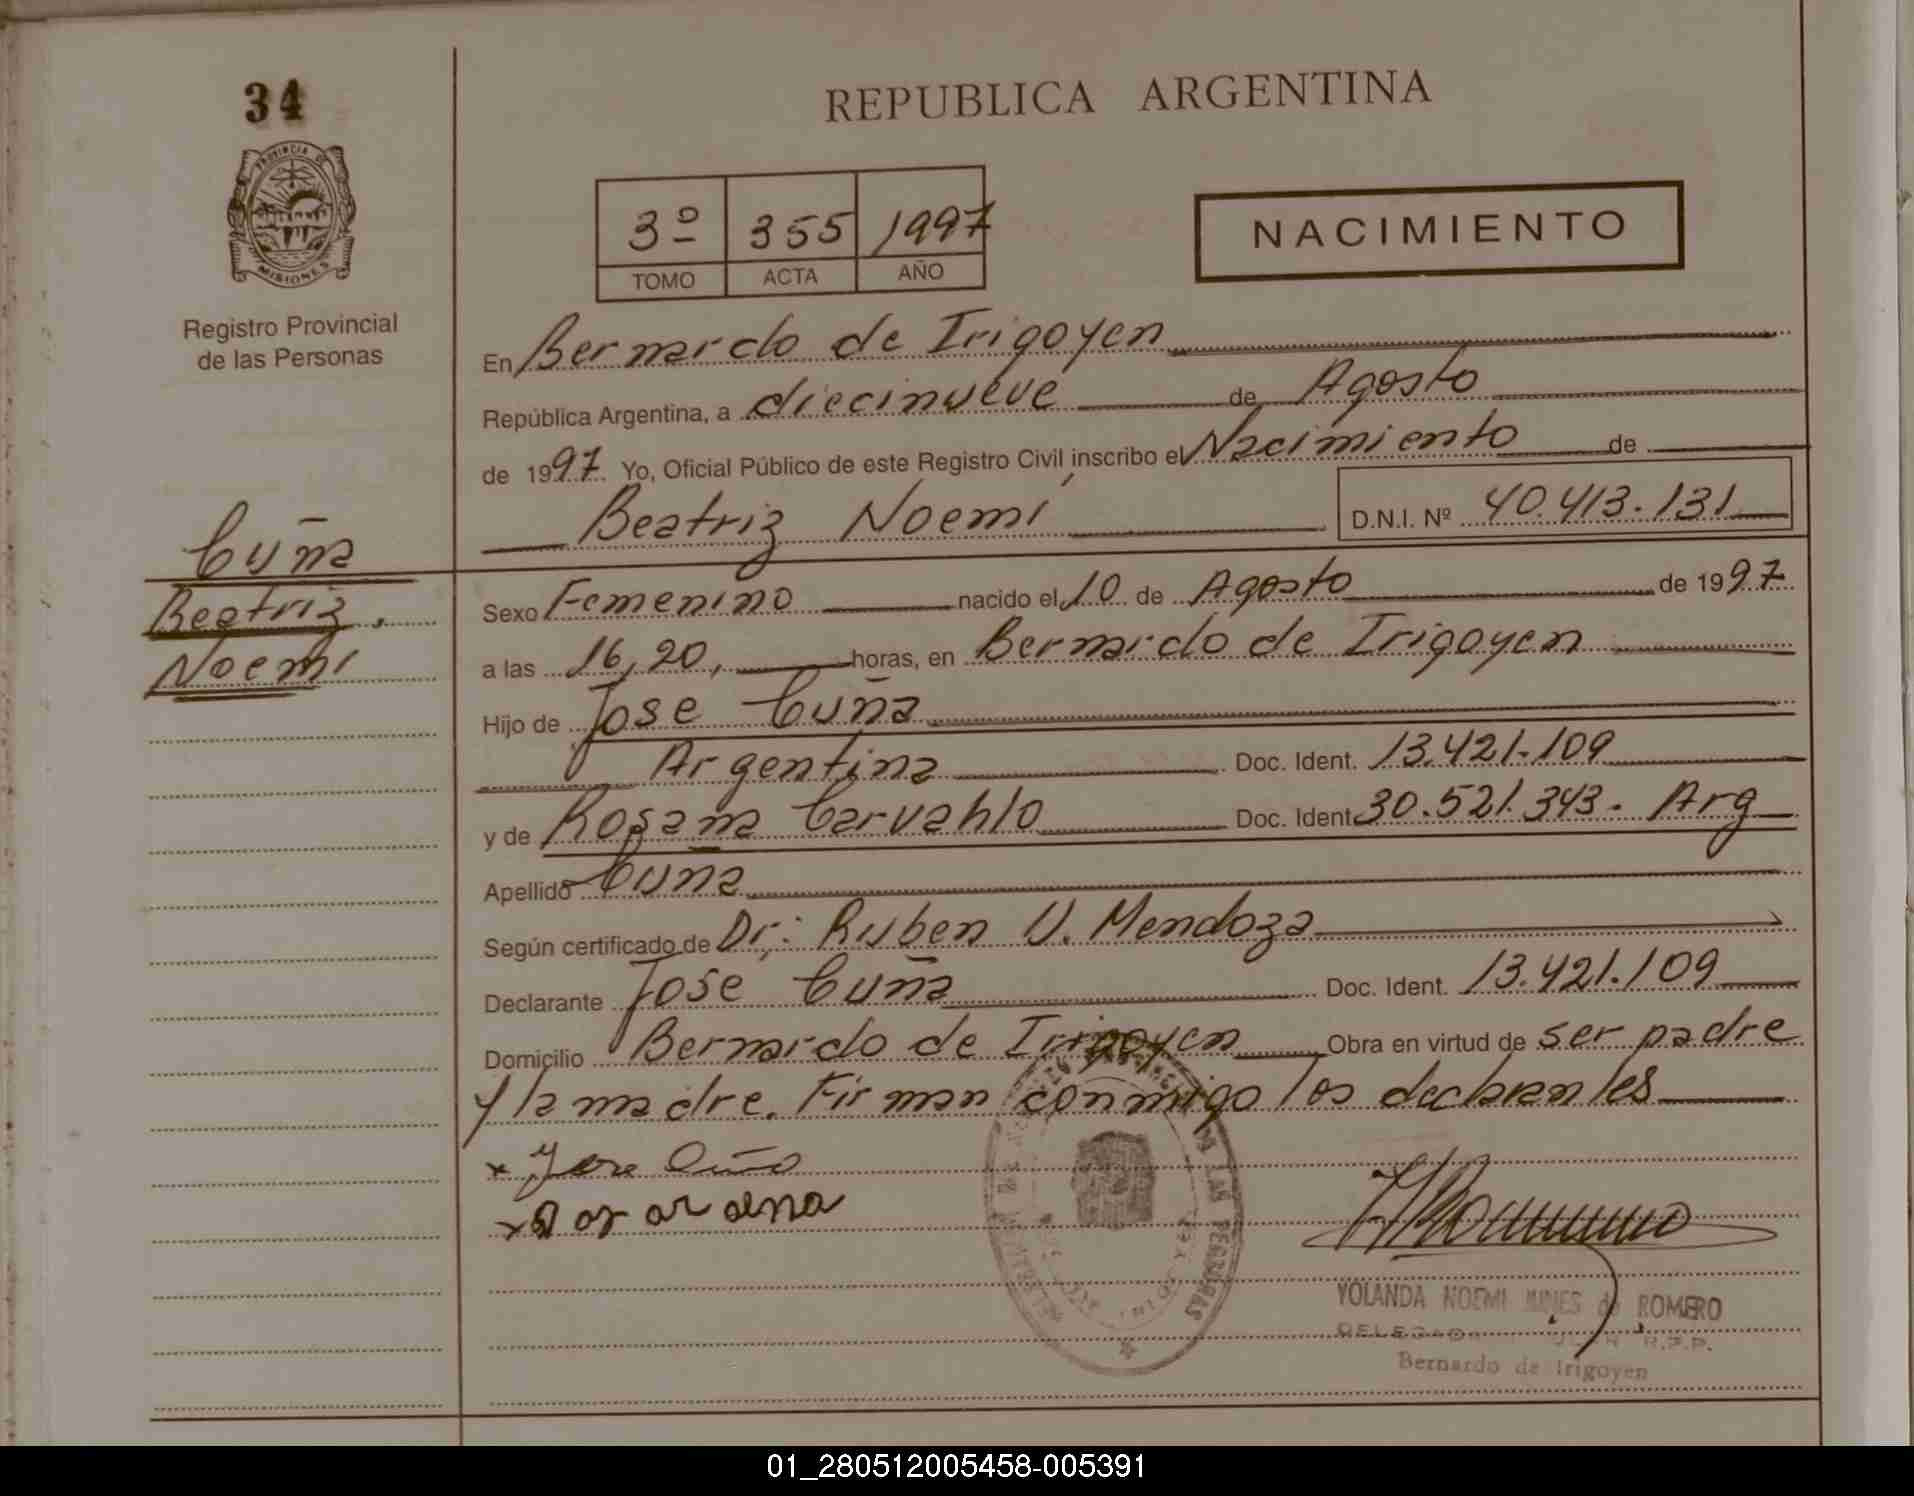 34
PROVINCIA DE
MISIONES
Registro Provincial
de las Personas
Cuña
Beatriz
Noemi
REPUBLICA ARGENTINA
3º 355 1997
TOMO ACTA AÑO
NACIMIENTO
En Bernardo de Irigoyen
República Argentina, a diecinueve de Agosto
de 1997. Yo, Oficial Público de este Registro Civil inscribo el Nacimiento de
Beatriz Noemí D.N.I. Nº 40.413.131
Sexo Femenino nacido el 10 de Agosto de 1997
a las 16,20, horas, en Bernardo de Irigoyen
Hijo de Jose Cuña
Argentina Doc. Ident. 13.421.109
y de Rosana Carvahlo Doc. Ident. 30.521.343. Arg
Apellido Cuna
Según certificado de Dr: Ruben V. Mendoza
Declarante José Cuña Doc. Ident. 13.421.109
Domicilio Bernardo de Irigoyen Obra en virtud de ser padre
y la madre. Firman conmigo los declarantes
x Jose Cuña
DE LAS PERSONAS
YOLANDA NOEMI de ROMERO
DELEGADA R.P.P.
Bernardo de Irigoyen
01_280512005458-005391